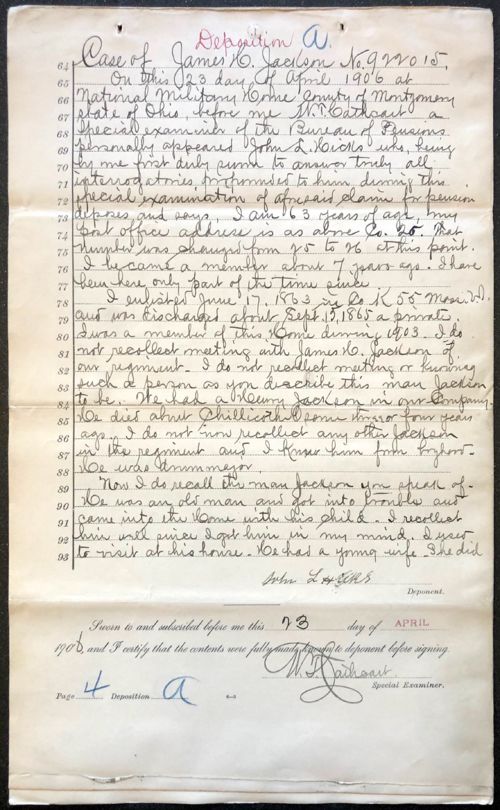 Deposition A.
64 Case of James H. Jackson No. 922015,
65 On this 23 day of April 1906 at
66 National Military Home County of Montgomery
67 State of Ohio, before me W. T. Cathcart a
68 Special examiner of the Bureau of Pensions
69 personally appeared John L. Hicks who, being
70 by me first duly sworn to answer truly all
71 interrogatories propounded to him during this
72 special examination of aforesaid claim for pension
73 deposes and says, I am 63 years of age, my
74 post office address is as above Co. 26. That
75 number was changed from 25 to 26 at this point.
76 I became a member about 7 years ago. I have
77 been here only part of the time since
78 I enlisted June 17, 1863 in Co K 55 Mass. Vol.
79 and was discharged about Sept. 15, 1865 a private.
80 I was a member of this Home during 1903. I do
81 not recollect meeting with James H. Jackson of
82 our regiment. I do not recollect meeting or knowing
83 such a person as you describe this man Jackson
84 to be. We had a Henry Jackson in our Company.
85 He died about Chillicothe some three or four years
86 ago. I do not now recollect any other Jackson
87 in the regiment and I knew him from boyhood.
88 He was drum major.
89 Now I do recall the man Jackson you speak of.
90 He was an old man and got into trouble and
91 came into the Home with his child. I recollect
92 him well since I get him in my mind. I used
93 to visit at his house. He had a young wife. She did
John L Hicks
Deponent.
Sworn to and subscribed before me this 23 day of APRIL
1906, and I certify that the contents were fully made known to deponent before signing.
W. T. Cathcart.
Special Examiner.
Page 4 Deposition A